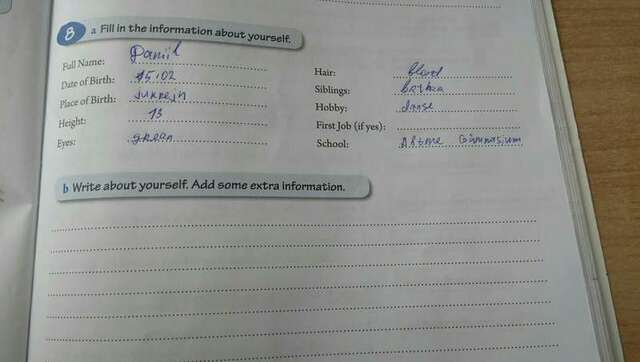 8 a Fill in the information about yourself.
Full Name: Daniil
Date of Birth: 15.02
Place of Birth:
Height: 13
Eyes: grean
Hair: bland
Siblings:
Hobby: danse
First Job (if yes):
School: Gimnasium
b Write about yourself. Add some extra information.